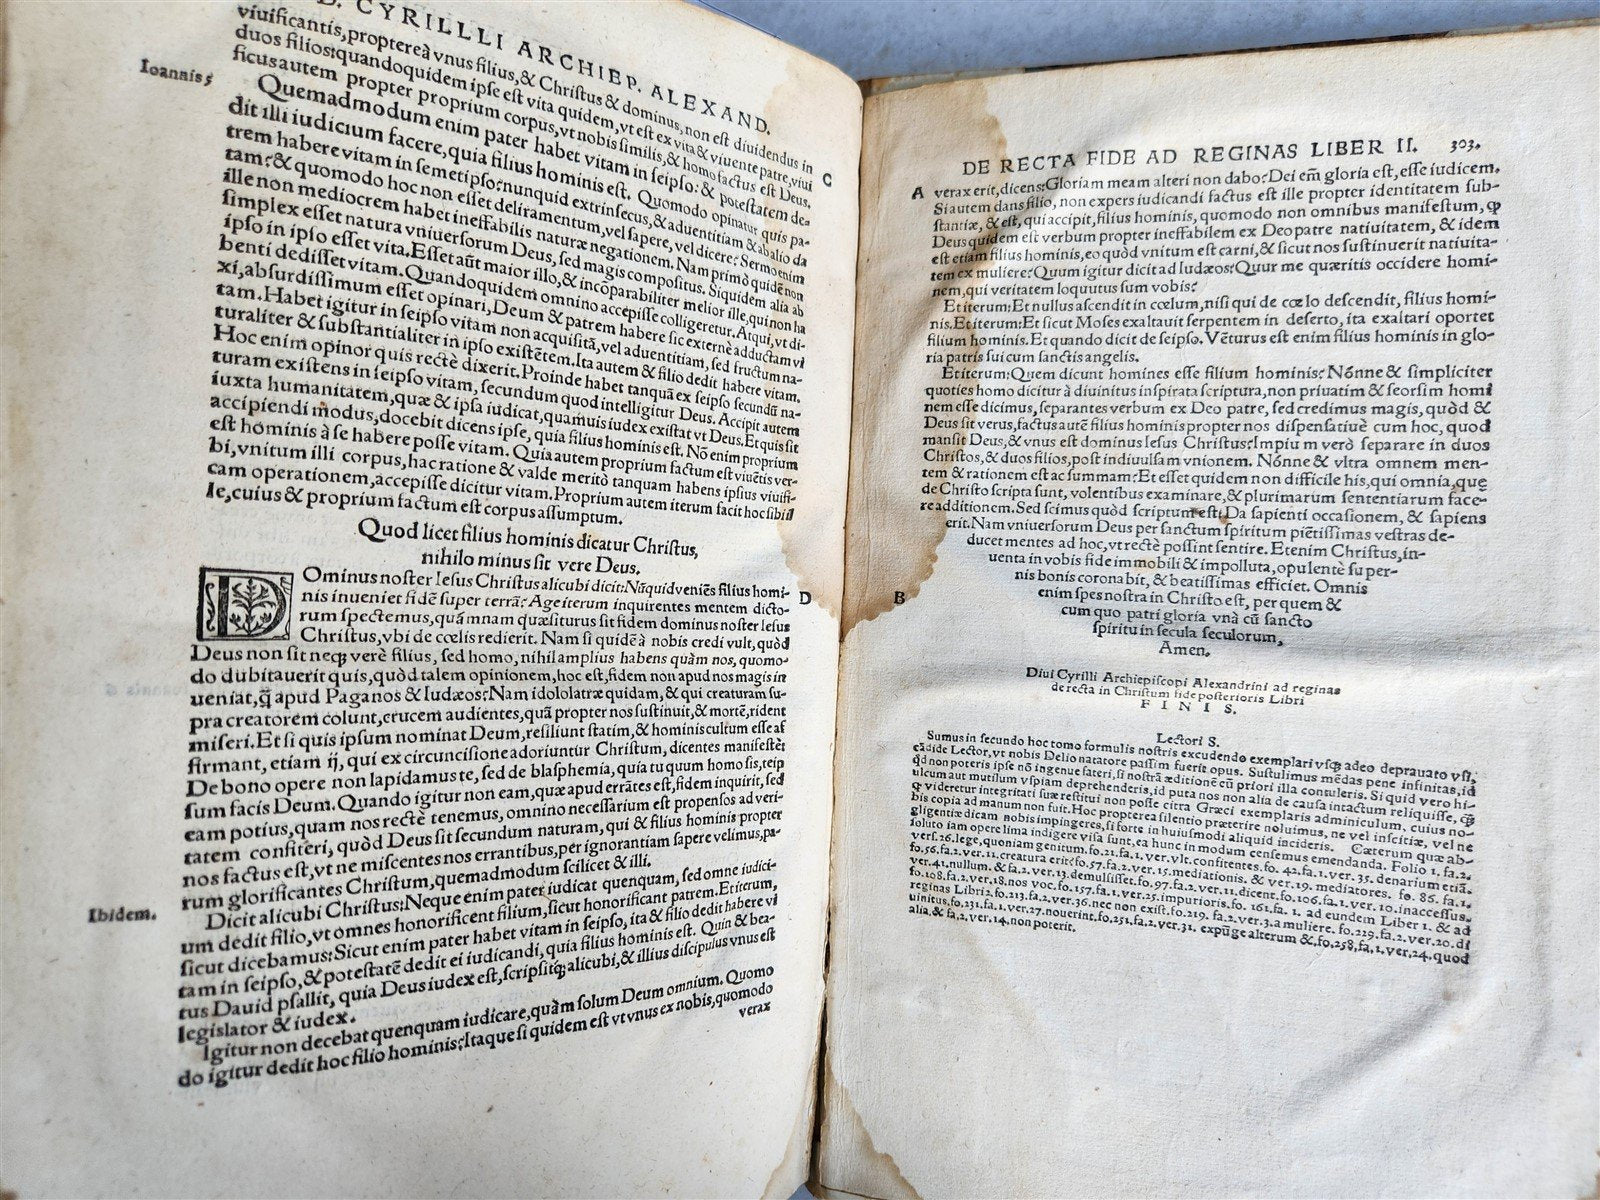 D. CYRILLLI ARCHIEP. ALEXAND.
viuificantis, propterea vnus filius, & Christus & dominus, non est diuidendus in
duos filios: quandoquidem ipse est vita quidem, vt est ex vita & viuente patre, viui
ficus autem propter proprium corpus, vt nobis similis, & homo factus est Deus.
Ioannis 5
Quemadmodum enim pater habet vitam in seipso: & potestatem de-
C
dit illi iudicium facere, quia filius hominis est. Quomodo opinatur quis pa-
trem habere vitam in semetipso: nunquid extrinsecus, & aduentitiam & ab alio da
tam? & quomodo hoc non esset deliramentum, vel sapere, vel dicere? Sermo enim
ille non mediocrem habet ineffabilis naturæ negationem. Nam primò quidē non
simplex esset natura vniuersorum Deus, sed magis compositus. Siquidem alia ab
ipso in ipso esset vita. Esset aūt maior illo, & incōparabiliter melior ille, qui non ha
benti dedisset vitam. Quandoquidem omnino accepisse colligeretur. Atqui, vt di-
xi, absurdissimum esset opinari, Deum & patrem habere sic externè adductam vi
tam. Habet igitur in seipso vitam non acquisitā, vel aduentitiam, sed fructum na-
turaliter & substantialiter in ipso existētem. Ita autem & filio dedit habere vitam.
Hoc enim opinor quis rectè dixerit. Proinde habet tanquā ex seipso secundū na-
turam existens in seipso vitam, secundum quod intelligitur Deus. Accipit autem
iuxta humanitatem, quæ & ipsa iudicat, quamuis iudex existat vt Deus. Et quis sit
accipiendi modus, docebit dicens ipse, quia filius hominis est. Nō enim proprium
est hominis à se habere posse vitam. Quia autem proprium factum est viuētis ver-
bi, vnitum illi corpus, hac ratione & valde meritò tanquam habens ipsius viuifi-
cam operationem, accepisse dicitur vitam. Proprium autem iterum facit hoc sibi il
le, cuius & proprium factum est corpus assumptum.
Quod licet filius hominis dicatur Christus,
nihilo minus sit vere Deus.
DOminus noster Iesus Christus alicubi dicit: Nūquid veniēs filius homi-
D
nis inueniet fidē super terrā? Age iterum inquirentes mentem dicto-
rum spectemus, quā nam quæsiturus sit fidem dominus noster Iesus
Christus, vbi de cœlis redierit. Nam si quidē à nobis credi vult, quòd
Deus non sit neq; verè filius, sed homo, nihil amplius habens quàm nos, quomo-
do dubitauerit quis, quòd talem opinionem, hoc est, fidem non apud nos magis in
ueniat, q̄ apud Paganos & Iudæos? Nam idololatræ quidam, & qui creaturam su-
pra creatorem colunt, crucem audientes, quā propter nos sustinuit, & mortē, rident
miseri. Et si quis ipsum nominat Deum, resiliunt statim, & hominis cultum esse af
firmant, etiam ij, qui ex circuncisione adoriuntur Christum, dicentes manifestè:
De bono opere non lapidamus te, sed de blasphemia, quia tu quum homo sis, teip
sum facis Deum. Quando igitur non eam, quæ apud errātes est, fidem inquirit, sed
eam potius, quam nos rectè tenemus, omnino necessarium est propensos ad veri-
tatem confiteri, quòd Deus sit secundum naturam, qui & filius hominis propter
nos factus est, vt ne miscentes nos errantibus, per ignorantiam sapere velimus, pa-
rum glorificantes Christum, quemadmodum scilicet & illi.
Ibidem.
Dicit alicubi Christus: Neque enim pater iudicat quenquam, sed omne iudici-
um dedit filio, vt omnes honorificent filium, sicut honorificant patrem. Et iterum,
sicut dicebamus: Sicut enim pater habet vitam in seipso, ita & filio dedit habere vi
tam in seipso, & potestatē dedit ei iudicandi, quia filius hominis est. Quin & bea-
tus Dauid psallit, quia Deus iudex est, scripsitq; alicubi, & illius discipulus vnus est
legislator & iudex.
Igitur non decebat quenquam iudicare, quàm solum Deum omnium. Quomo
do igitur dedit hoc filio hominis? Itaque si quidem est vt vnus ex nobis, quomodo
verax
DE RECTA FIDE AD REGINAS LIBER II. 303.
A verax erit, dicens: Gloriam meam alteri non dabo? Dei em̄ gloria est, esse iudicem.
Si autem dans filio, non expers iudicandi factus est ille propter identitatem sub-
stantiæ, & est, qui accipit, filius hominis, quomodo non omnibus manifestum, qp
Deus quidem est verbum propter ineffabilem ex Deo patre natiuitatem, & idem
est etiam filius hominis, eo quòd vnitum est carni, & sicut nos sustinuerit natiuita-
tem ex muliere? Quum igitur dicit ad Iudæos: Quur me quæritis occidere homi-
nem, qui veritatem loquutus sum vobis?
Et iterum: Et nullus ascendit in cœlum, nisi qui de cœlo descendit, filius homi-
nis. Et iterum: Et sicut Moses exaltauit serpentem in deserto, ita exaltari oportet
filium hominis. Et quando dicit de seipso. Vēturus est enim filius hominis in glo-
ria patris sui cum sanctis angelis.
Et iterum: Quem dicunt homines esse filium hominis? Nónne & simpliciter
quoties homo dicitur à diuinitus inspirata scriptura, non priuatim & seorsim homi
nem esse dicimus, separantes verbum ex Deo patre, sed credimus magis, quòd &
Deus sit verus, factus autē filius hominis propter nos dispensatiuè cum hoc, quod
mansit Deus, & vnus est dominus Iesus Christus? Impiū m verò separare in duos
Christos, & duos filios, post indiuulsam vnionem. Nónne & vltra omnem men-
tem & rationem est ac summam? Et esset quidem non difficile his, qui omnia, quę
de Christo scripta sunt, volentibus examinare, & plurimarum sententiarum face-
re additionem. Sed scimus quòd scriptum est: Da sapienti occasionem, & sapiens
B
erit. Nam vniuersorum Deus per sanctum spiritum piētissimas vestras de-
ducet mentes ad hoc, vt rectè possint sentire. Etenim Christus, in-
uenta in vobis fide immobili & impolluta, opulentè super-
nis bonis coronabit, & beatissimas efficiet. Omnis
enim spes nostra in Christo est, per quem &
cum quo patri gloria vnà cū sancto
spiritu in secula seculorum,
Amen.
Diui Cyrilli Archiepiscopi Alexandrini ad reginas
de recta in Christum fide posterioris Libri
FINIS.
Lectori S.
Sumus in secundo hoc tomo formulis nostris excudendo exemplari vsq; adeo deprauato vsi,
cādide Lector, vt nobis Delio natatore passim fuerit opus. Sustulimus mēdas pene infinitas, id
qd non poteris ipse nō ingenue fateri, si nostrā æditionē cū priori illa contuleris. Si quid vero hi-
ulcum aut mutilum vspiam deprehenderis, id puta nos non alia de causa intactum reliquisse, q̄
qp videretur integritati suæ restitui non posse citra Græci exemplaris adminiculum, cuius no-
bis copia ad manum non fuit. Hoc propterea silentio præterire noluimus, ne vel inscitiæ, vel ne
gligentiæ dicam nobis impingeres, si forte in huiusmodi aliquid incideris. Cæterum quæ ab-
soluto iam opere lima indigere visa sunt, ea hunc in modum censemus emendanda. Folio 1. fa. 2.
vers. 26. lege, quoniam genitum. fo. 21. fa. 1. ver. vlt. confitentes. fo. 42. fa. 1. ver. 35. denarium etiā.
fo. 56. fa. 2. ver. 11. creatura erit: fo. 57. fa. 2. ver. 15. mediationis. & ver. 19. mediatores. fo. 85. fa. 1.
ver. 41. nullum. & fa. 2. ver. 13. demulsisset. fo. 97. fa. 2. ver. 11. dicent. fo. 106. fa. 1. ver. 10. inaccessus.
fo. 108. fa. 2. ver. 18. nos voc. fo. 157. fa. 1. ver. 25. impurioris. fo. 161. fa. 1. ad eundem Liber 1. & ad
reginas Libri 2. fo. 213. fa. 2. ver. 36. nec non exist. fo. 219. fa. 2. ver. 3. a muliere. fo. 229. fa. 2. ver. 20. di
uinitus. fo. 231. fa. 1. ver. 27. nouerint. fo. 251. fa. 2. ver. 31. expūge alterum &. fo. 258. fa. 1. ver. 24. quod
alia, & fa. 2. ver. 14. non poterit.